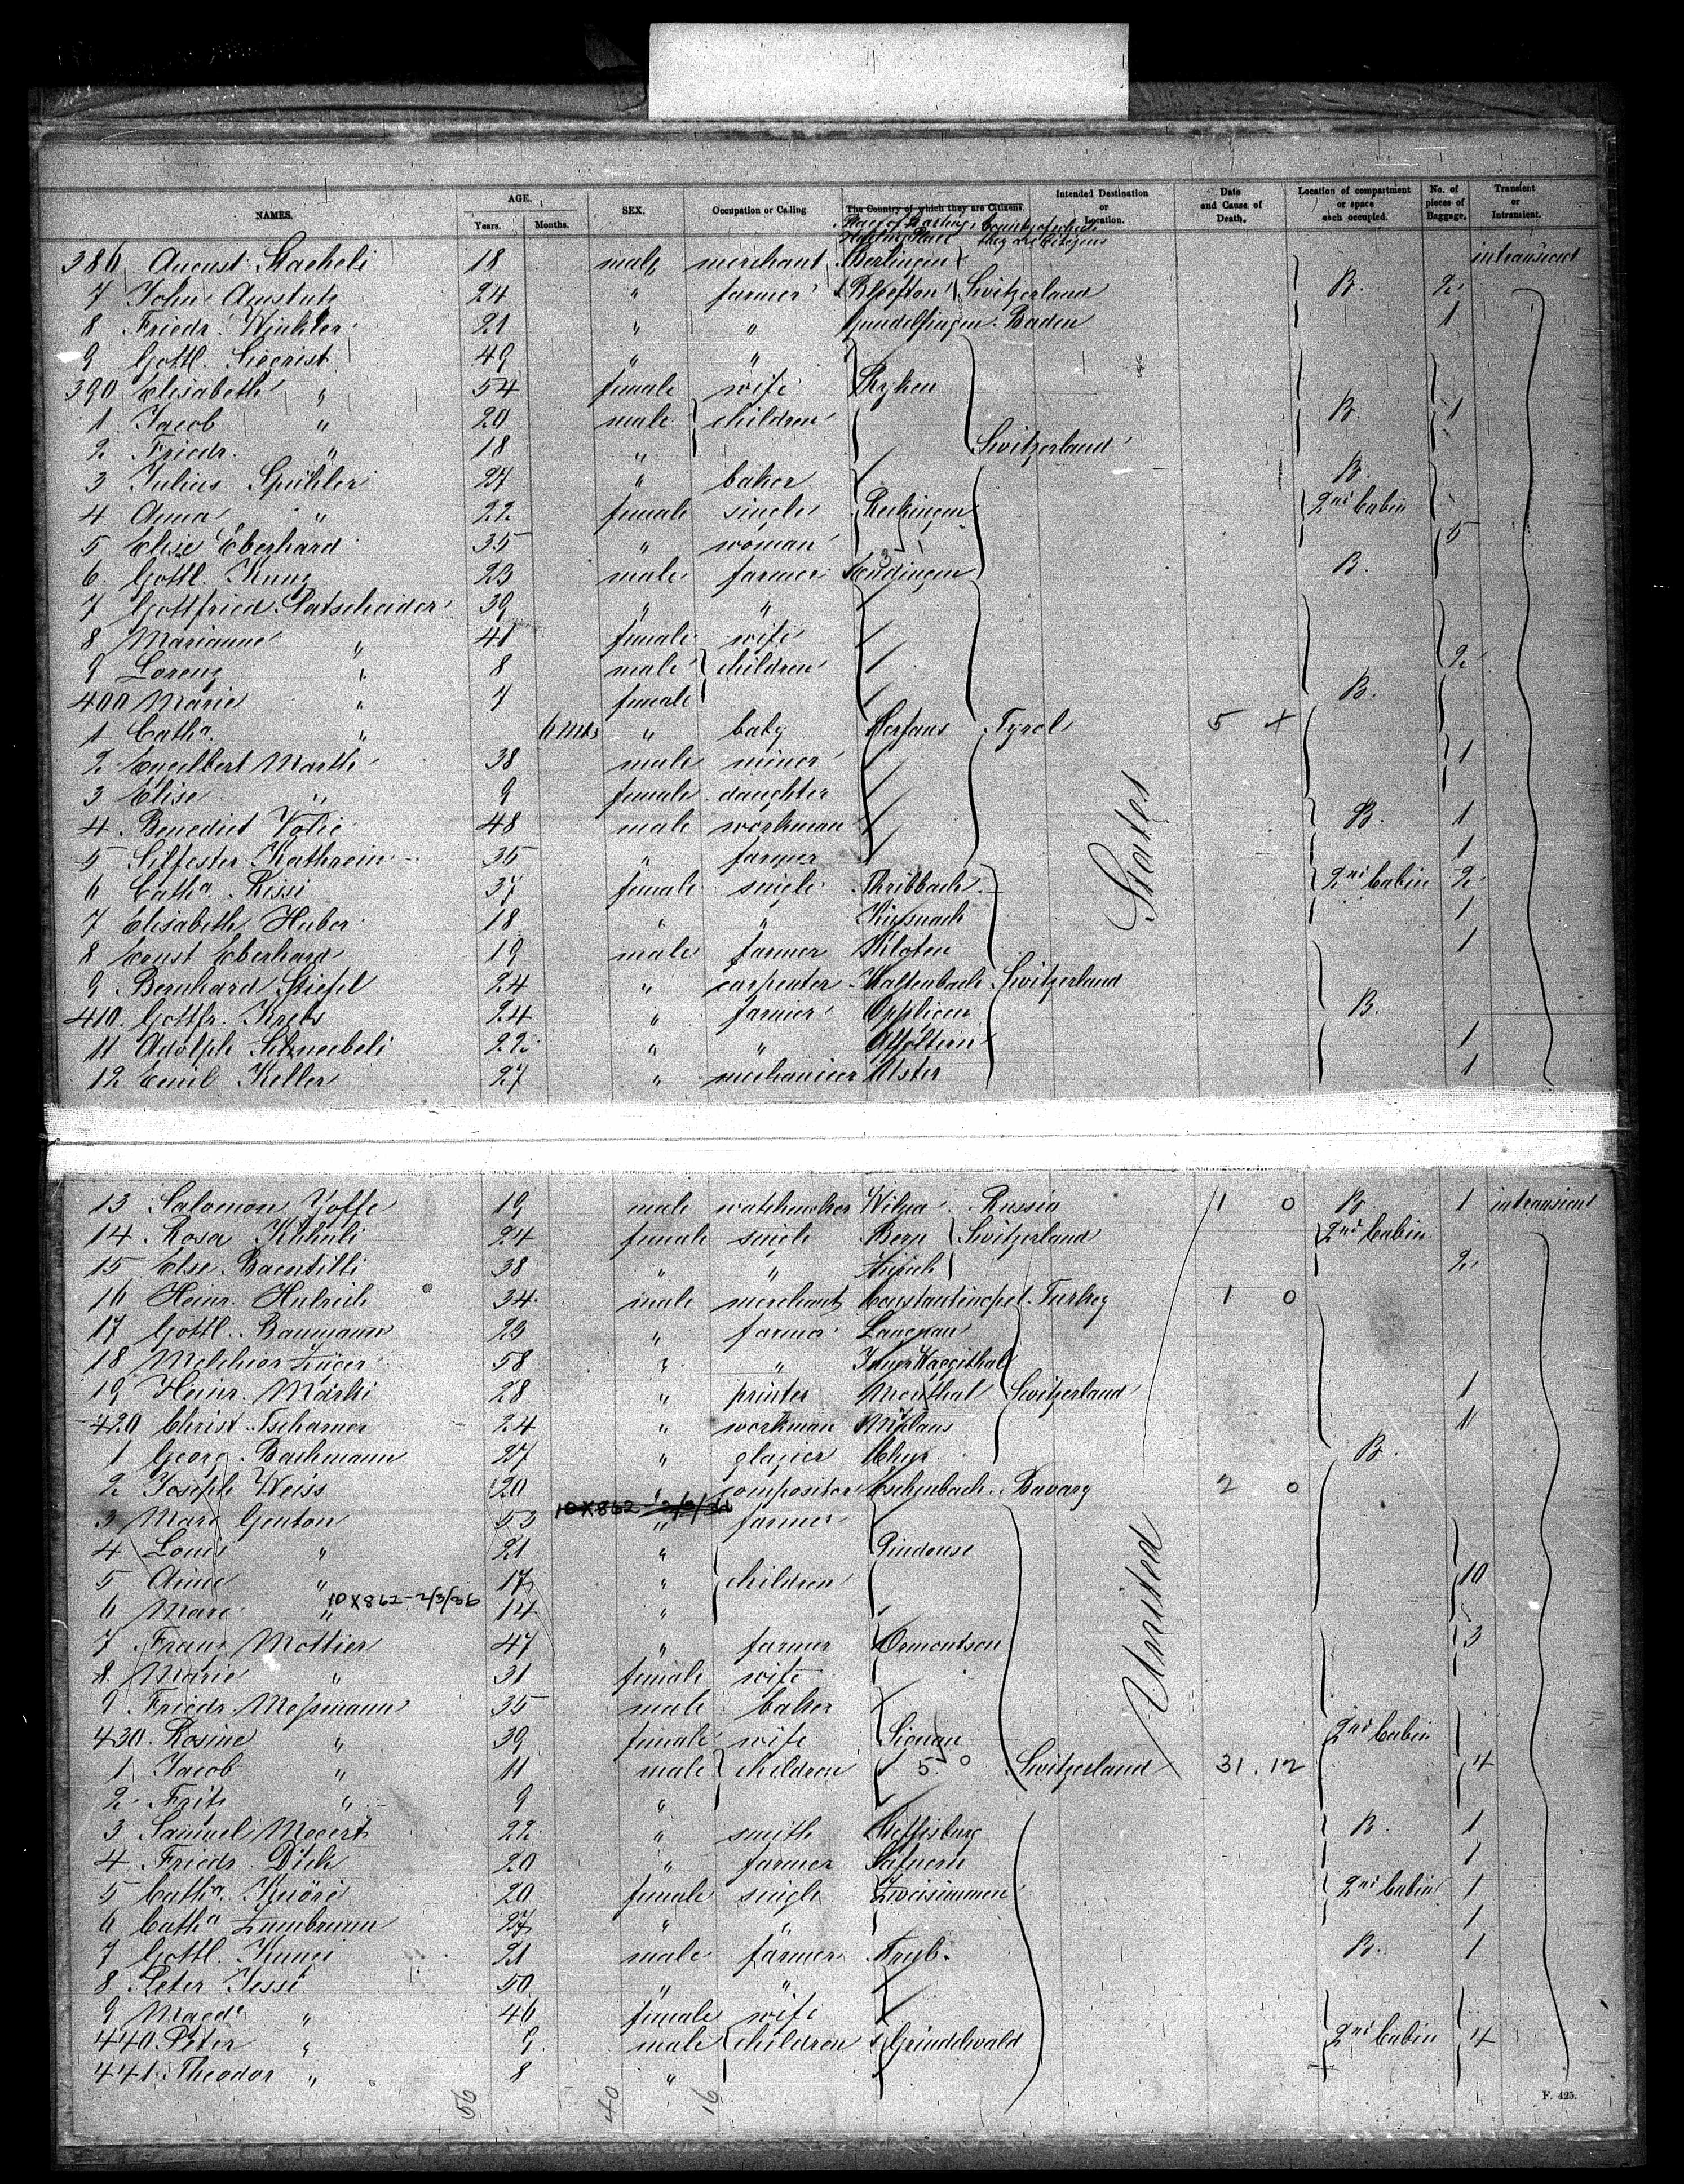 NAMES. AGE. Years. Months. SEX. Occupation or Calling. The Country of which they are Citizens. Intended Destination or Location. Date and Cause of Death. Location of compartment or space each occupied. No. of pieces of Baggage. Transient or Intransient.
Country of which they are Citizens
386 August Staeheli 18 male merchant Berlingen intransient
7 John Amstutz 24 " farmer Switzerland B. 2
8 Friedr. Winkler 21 " " Gundelfingen Baden 1
9 Gottl. Siegrist 49 " "
390 Elisabeth " 54 female wife
1 Jacob " 20 male children B. 1
2 Friedr. " 18 " Switzerland
3 Julius Spühler 27 " baker B.
4 Anna " 22 female single Reckingen 2nd Cabin
5 Elise Eberhard 35 " woman 5
6 Gottl. Kunz 23 male farmer Endingen B.
7 Gottfried Patscheider 39 " "
8 Marianne " 41 female wife
9 Lorenz " 8 male children 2
400 Marie " 7 female B.
1 Catha. " 6 mts " baby Serfaus Tyrol 5 x
2 Engelbert Marth 38 male miner 1
3 Elise " 9 female daughter
4 Benedict 48 male workman B. 1
5 Silfester Kathrein 35 " farmer 1
6 Catha. Rissi 37 female single 2nd Cabin 2
7 Elisabeth Huber 18 " " Küssnach 1
8 Ernst Eberhard 19 male farmer Kloten 1
9 Bernhard Stiefel 24 " carpenter Kaltenbach Switzerland
410 Gottfr. Krebs 24 " farmer Oppligen B.
11 Adolph Schneebeli 22 " " Affoltern 1
12 Emil Keller 27 " mechanicer Uster 1
States
13 Salomon Joffe 19 male watchmaker Wilna Russia 1 0 B 1 intransient
14 Rosa 24 female single Bern Switzerland 2nd Cabin
15 Else 38 " " Zürich 2
16 Heinr. Hulrich 34 male merchant Constantinopel Turkey 1 0
17 Gottl. Baumann 23 " farmer Langnau
18 Melchior Züger 58 " " Waegithal
19 Heinr. Märki 28 " printer Monthal Switzerland 1
420 Christ. Tscharner 24 " workman 11
1 Georg Bachmann 27 " glazier Chur B.
2 Joseph Weiss 20 " compositor Eschenbach Bavary 2 0
10X862-2/3/36
3 Marc Genton 53 " farmer
4 Louis " 21 "
5 Aime " 17 " children 10
6 Marc " 10X862-2/3/36 14 "
7 Franz Mottier 47 " farmer 3
8 Marie " 31 female wife
9 Friedr. Messmann 35 male baker
430 Rosine " 39 female wife Signau 2nd Cabin
1 Jacob " 11 male children 5 0 Switzerland 31. 12 4
2 Fritz " 9 "
3 Samuel Megert 22 " smith Steffisburg B. 1
4 Friedr. Dick 20 " farmer Safnern 1
5 Catha. Knöri 20 female single Zweisimmen 2nd Cabin 1
6 Catha Zumbrunn 27 " " 1
7 Gottl. 21 male farmer Trub. B. 1
8 Peter Jessi 50 " "
9 Magd. " 46 female wife
440 Peter " 9 male children Grindelwald 2nd Cabin 4
441 Theodor " 8 "
United
56 40 16
F. 425.